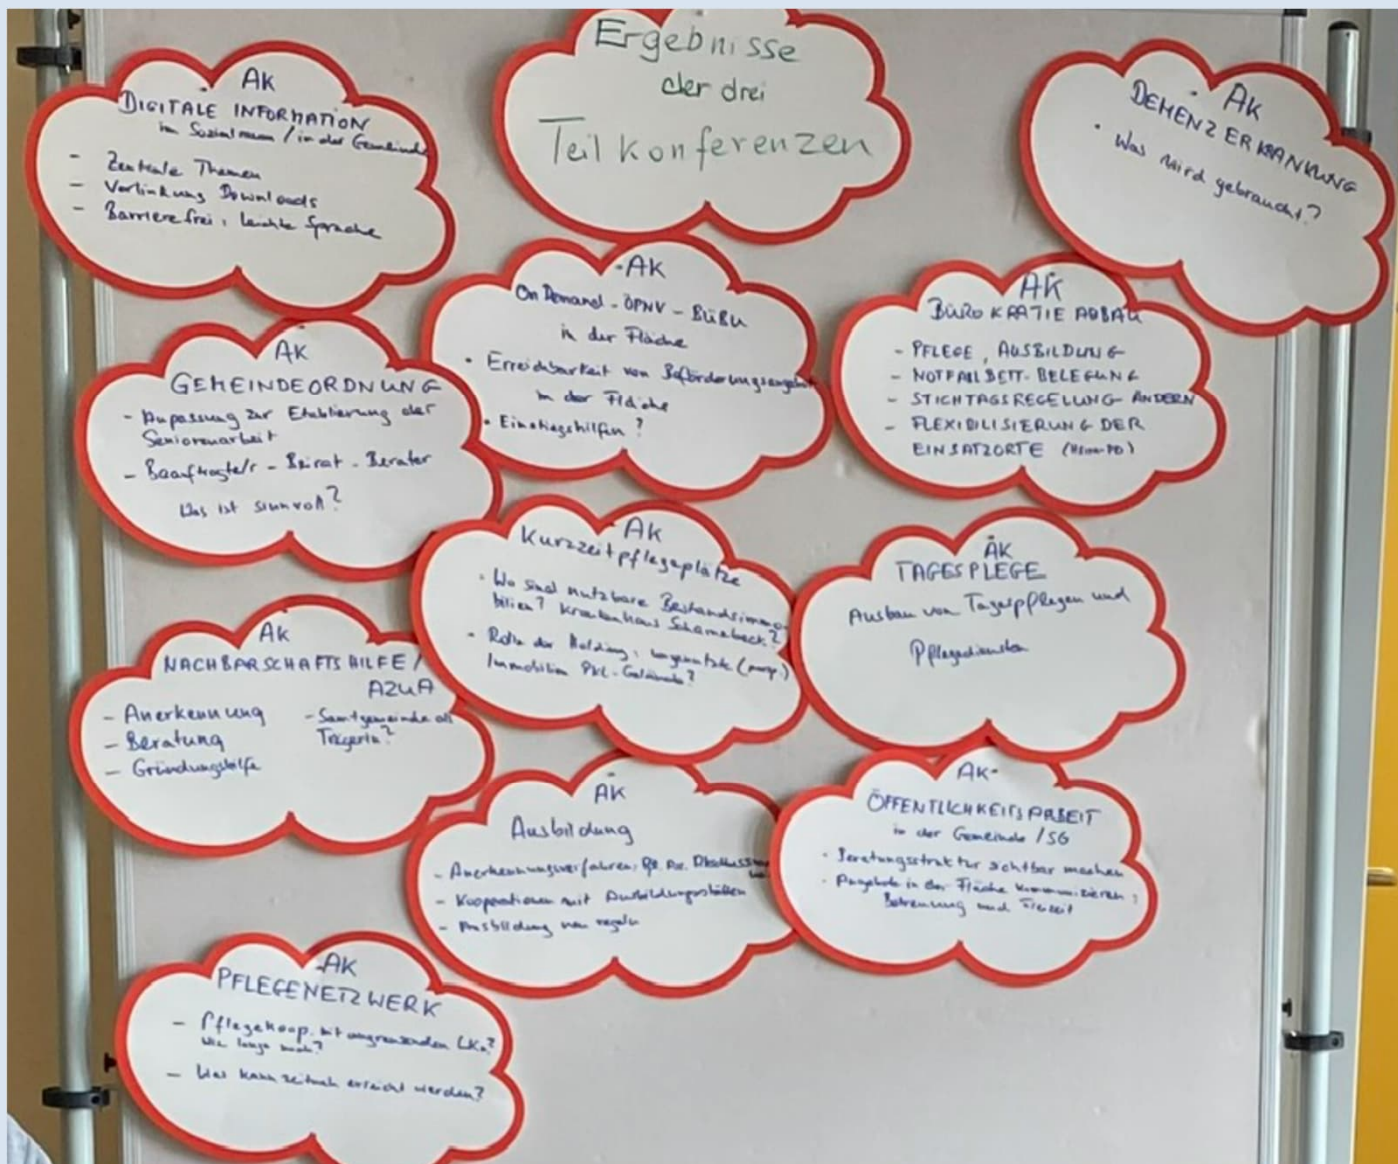 Ergebnisse
der drei
Teilkonferenzen
AK
DIGITALE INFORMATION
im Sozialraum / in der Gemeinde
- Zentrale Themen
- Verlinkung Downloads
- Barrierefrei, leichte Sprache
AK
DEMENZERKRANKUNG
· Was wird gebraucht?
AK
On Demand - ÖPNV - BüBu
in der Fläche
· Erreichbarkeit von Beförderungsangebot
in der Fläche
· Einstiegshilfen?
AK
BÜROKRATIE ABBAU
- PFLEGE, AUSBILDUNG
- NOTFALLBETT-BELEGUNG
- STICHTAGSREGELUNG ÄNDERN
- FLEXIBILISIERUNG DER
EINSATZORTE
AK
GEMEINDEORDNUNG
- Anpassung zur Etablierung der
Seniorenarbeit
- Beauftragte/r - Beirat - Berater
Was ist sinnvoll?
AK
Kurzzeitpflegeplätze
· Wo sind nutzbare Bestandsimmo-
bilien? Krankenhaus Scharnebeck?
· Rolle der Holding, ungenutzte
Immobilien PKL-Gelände?
AK
TAGESPLEGE
Ausbau von Tagespflegen und
Pflegediensten
AK
NACHBARSCHAFTSHILFE /
AZUA
- Anerkennung
- Beratung
- Gründungshilfe
- Samtgemeinde als
Trägerin?
AK
Ausbildung
- Anerkennungsverfahren,
- Kooperationen mit Ausbildungsstätten
- Ausbildung neu regeln
AK
ÖFFENTLICHKEITSARBEIT
in der Gemeinde / SG
· Beratungsstruktur sichtbar machen
· Angebote in der Fläche kommunizieren,
Betreuung und Freizeit
AK
PFLEGENETZWERK
- Pflegekoop. mit angrenzenden LK.?
Wie lange noch?
- Was kann zeitnah erreicht werden?